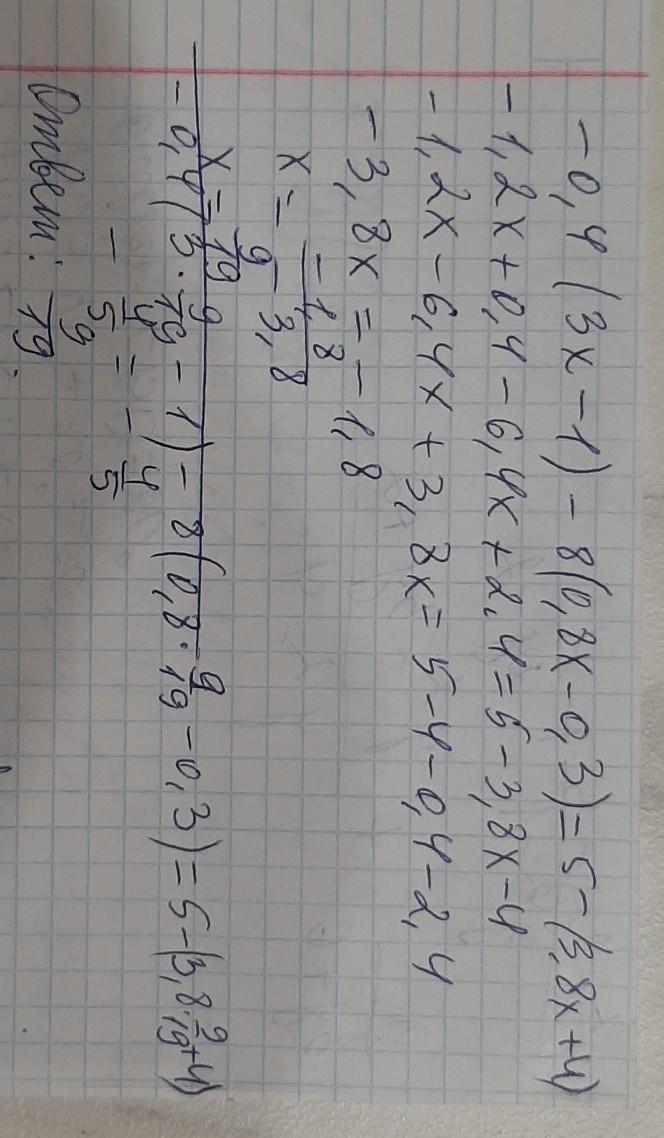 -0,4(3x-1)-8(0,8x-0,3)=5-(3,8x+4)
-1,2x+0,4-6,4x+2,4=5-3,8x-4
-1,2x-6,4x+3,8x=5-4-0,4-2,4
-3,8x=-1,8
x=-1,8/-3,8
x=9/19
-0,4(3·9/19-1)-8(0,8·9/19-0,3)=5-(3,8·9/19+4)
-4/5=-4/5
Ответ: 9/19.